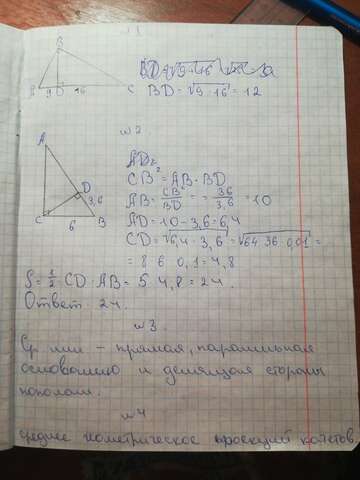 №1
B
A 9 D 16 C
BD = √9·16 = 12
№2
A
AD =
CB² = AB · BD
AB = CB²/BD = 36/3,6 = 10
D
3,6
AD = 10 - 3,6 = 6,4
C 6 B
CD = √6,4 · 3,6 = √64 36 0,01 =
= 8 6 0,1 = 4,8
S = 1/2 · CD · AB = 5 4,8 = 24.
Ответ 24.
№3
Ср. лин – прямая, параллельная
основанию и делящая стороны
пополам.
№4
среднее геометрическое проекций катетов